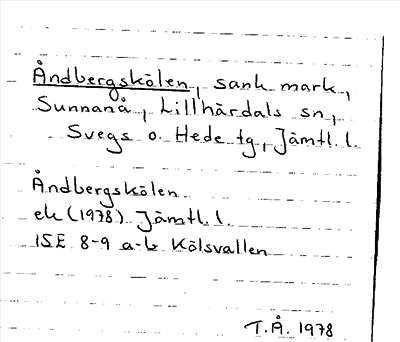 Åndbergskölen, sank mark,
Sunnanå, Lillhärdals sn,
Svegs o. Hede tg, Jämtl. l.
Åndbergskölen
ek (1978) Jämtl. l.
15E 8-9 a-b Kölsvallen
T.Å. 1978